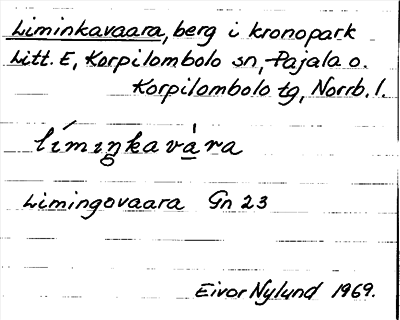 Liminkavaara, berg i kronopark
Litt. E, Korpilombolo sn, Pajala o.
Korpilombolo tg, Norrb. l.
líminkavára
Limingovaara Gn 23
Eivor Nylund 1969.